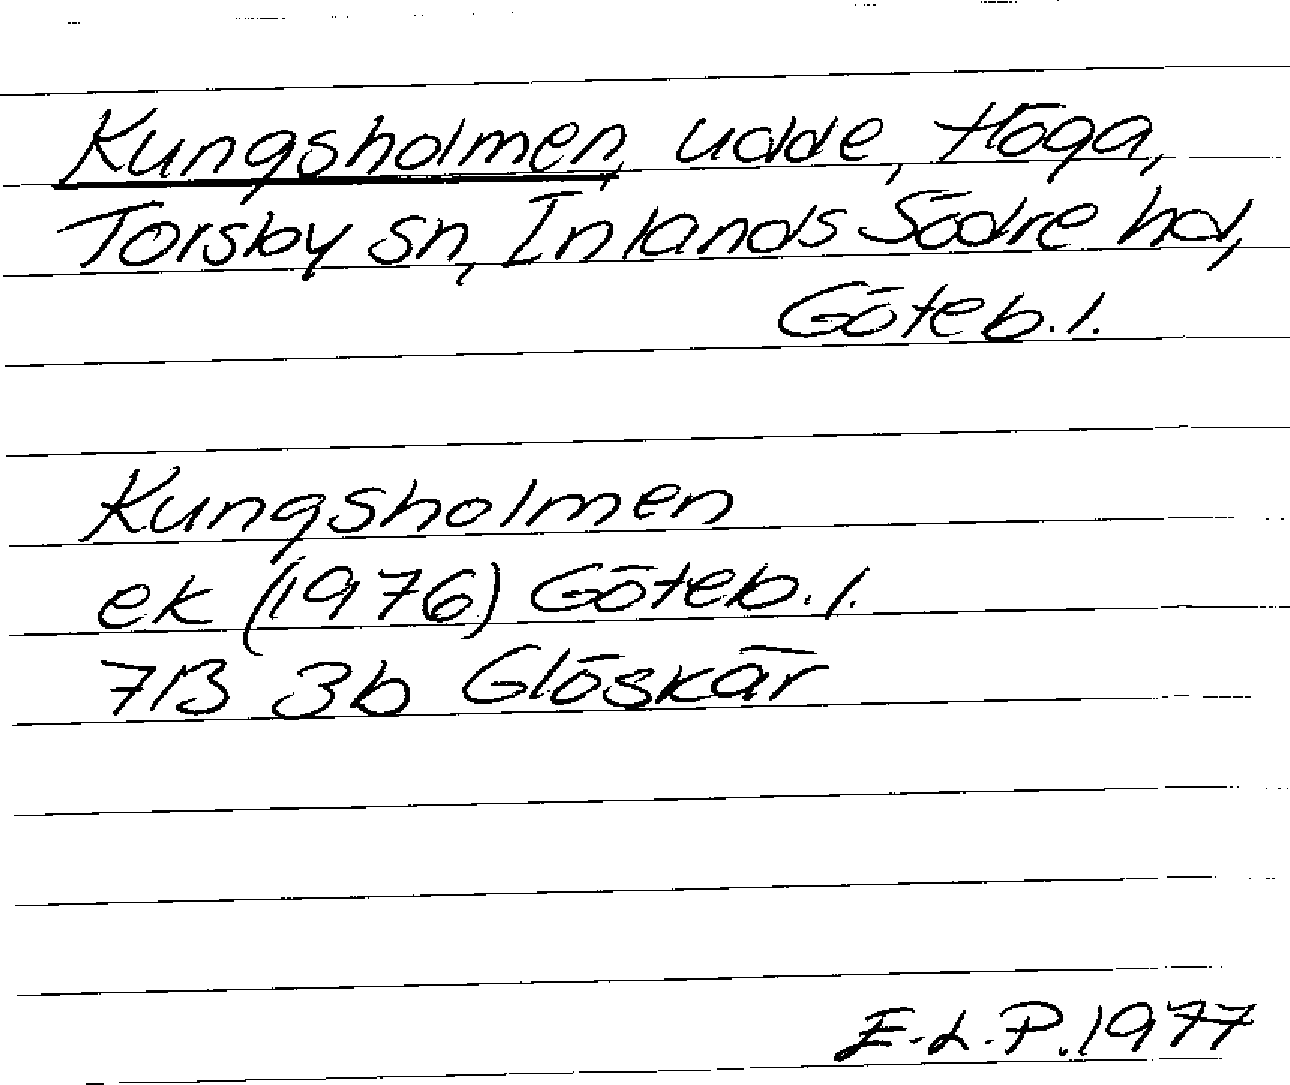 Kungsholmen, udde, Höga,
Torsby sn, Inlands Södre hd,
Göteb. l.
Kungsholmen
ek (1976) Göteb. l.
7B 3b Glöskär
E.L.P. 1977